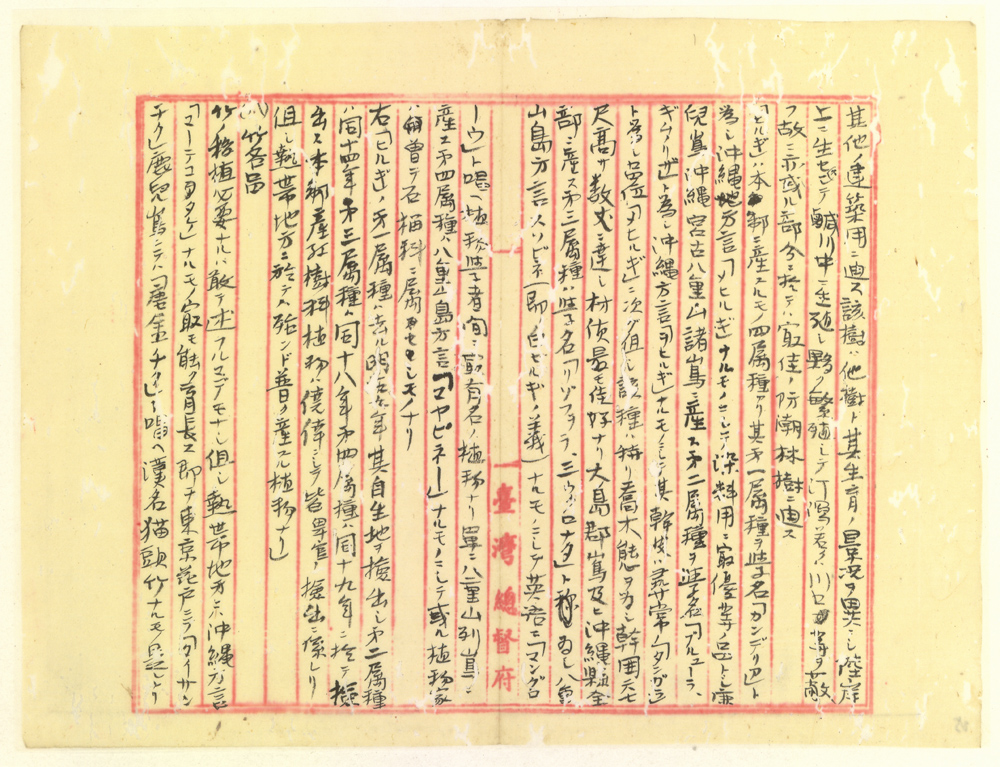 其他ノ建築用ニ適ス該樹ハ他樹ト其生育ノ景況ヲ異ニシ陸岸
上ニ生セズシテ鹹川中ニ生殖シ夥ク繁殖シテ汀潟若クハ川口等ヲ蔽
フ故ニ亦或ル部分ニ於テハ最佳ノ防潮林樹ニ適ス
「ヒルギ」ハ本邦ニ産スルモノ四属種アリ其第一属種ヲ学名「カンデリア」ト
為シ沖縄地方言「メヒルギ」ナルモノニシテ染料用ニ最優等ノ品トシ鹿
児島沖縄宮古八重山諸島ニ産ス第二属種ヲ学名「ブルユーラ
ギムリザ」ト為シ沖縄方言「ヲヒルギ」ナルモノニシテ其幹皮ハ尋常ノ「タンガラ」
ト為シ品位「メヒルギ」ニ次グ但シ該種ハ特リ喬木態ヲ為シ幹囲六七
尺高サ数丈ニ達シ材質最モ佳好ナリ大島郡島及ヒ沖縄県全
部ニ産ス第三属種ハ学名「リゾフォラ、ミウクロナタ」ト称ヘ八重
山島方言「スソピネ」(即白ヒルギノ義)ナルモノニシテ英語ニ「マングロ
ーウ」ト唱ヘ植物学者間ニ最有名ノ植物ナリ単ニ八重山列島ニ
産ス第四属種ハ八重山島方言「マヤピネー」ナルモノニシテ或ル植物家
ハ曾テ石榴科ニ属セシモノナリ
右「ヒルギ」ノ第一属種ハ去ル明治六年其自生地ヲ検出シ第二属種
ハ同十四年第三属種ハ同十八年第四属種ハ同十九年ニ於テ検
出ス本邦産紅樹科植物ハ僥倖ニシテ皆卑官ノ検出ニ係レリ
但シ熱帯地方ニ於テハ殆ンド普ク産スル植物ナリ
竹各品
竹ノ移植必要ナルハ敢テ述フルマデモナシ但シ熱帯地方沖縄方言
「マーテコダケ」ナルモノ最モ能ク育長ス即チ東京花戸ニテ「タイサン
チク」鹿児島ニテハ「唐金チク」ト唱ヘ漢名猫頭竹ナルモノ是レナリ
臺灣總督府